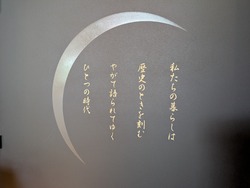 私たちの暮らしは
歴史のときを刻む
やがて語られてゆく
ひとつの時代